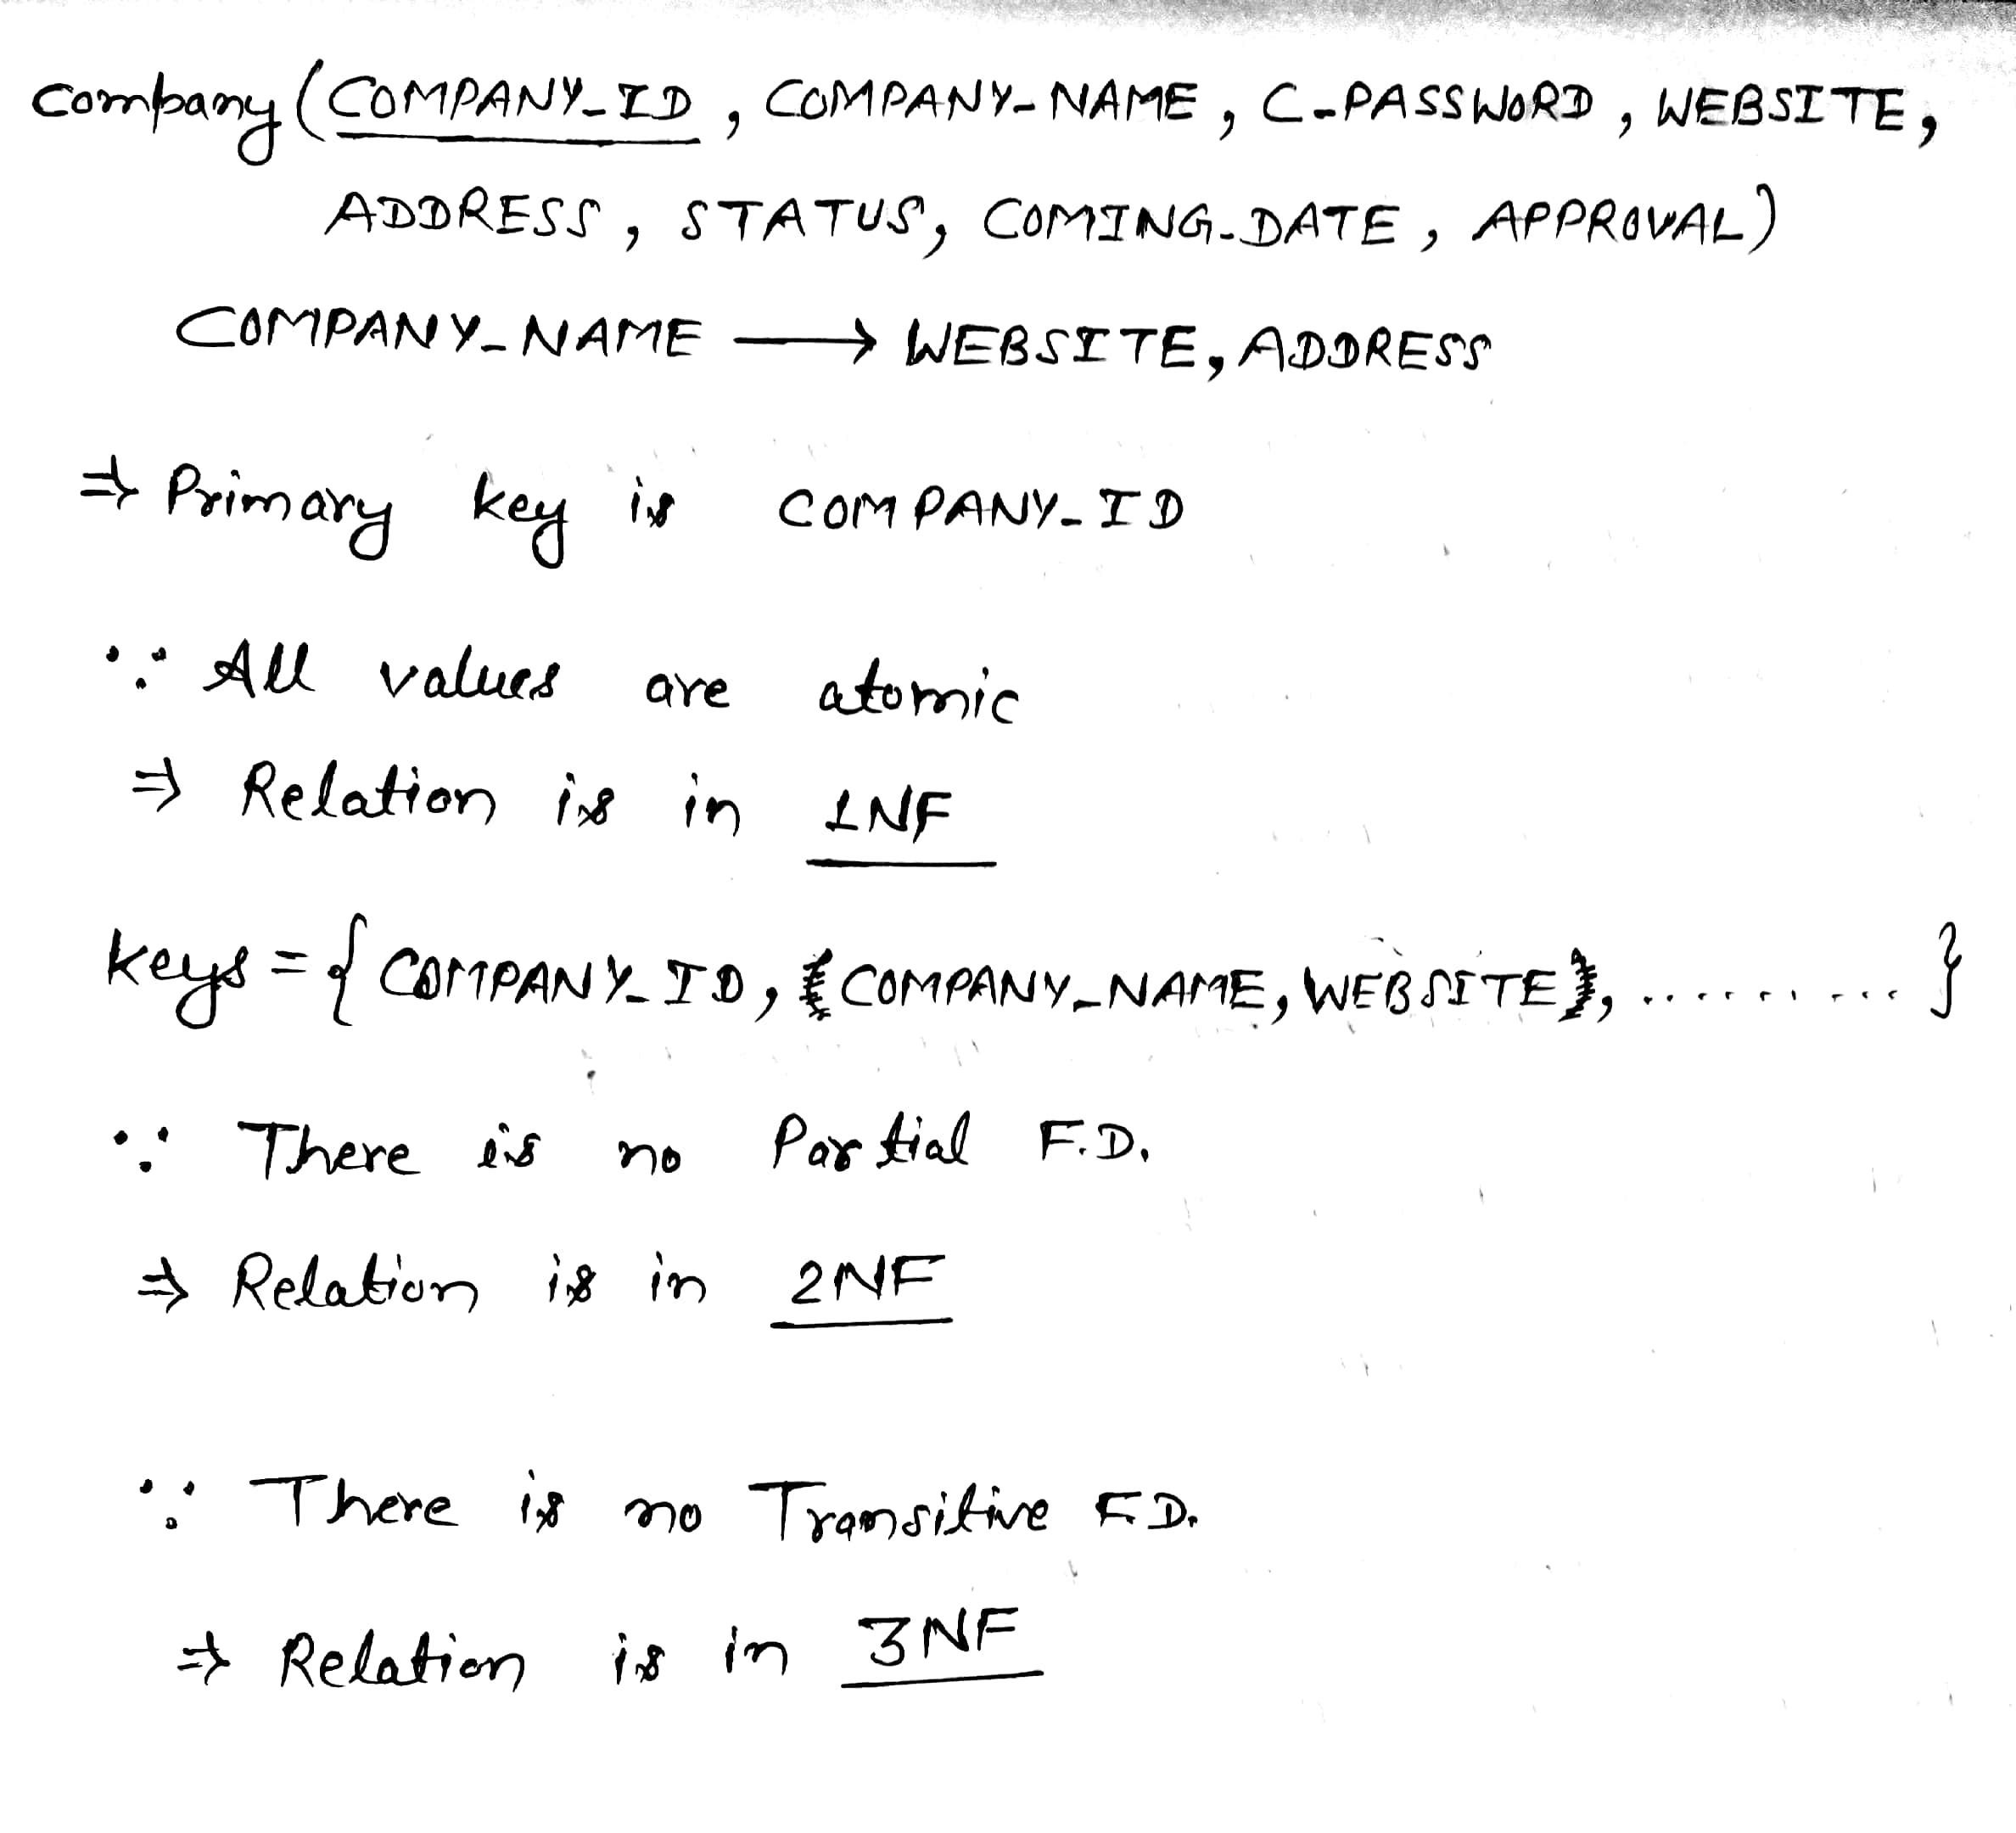 Company (COMPANY_ID, COMPANY_NAME, C_PASSWORD, WEBSITE,
ADDRESS, STATUS, COMING_DATE, APPROVAL)
COMPANY_NAME → WEBSITE, ADDRESS
⇒ Primary key is COMPANY_ID
∵ All values are atomic
⇒ Relation is in 1NF
keys = { COMPANY_ID, COMPANY_NAME, WEBSITE, .......... }
∵ There is no Partial F.D.
⇒ Relation is in 2NF
∵ There is no Transitive F.D.
⇒ Relation is in 3NF